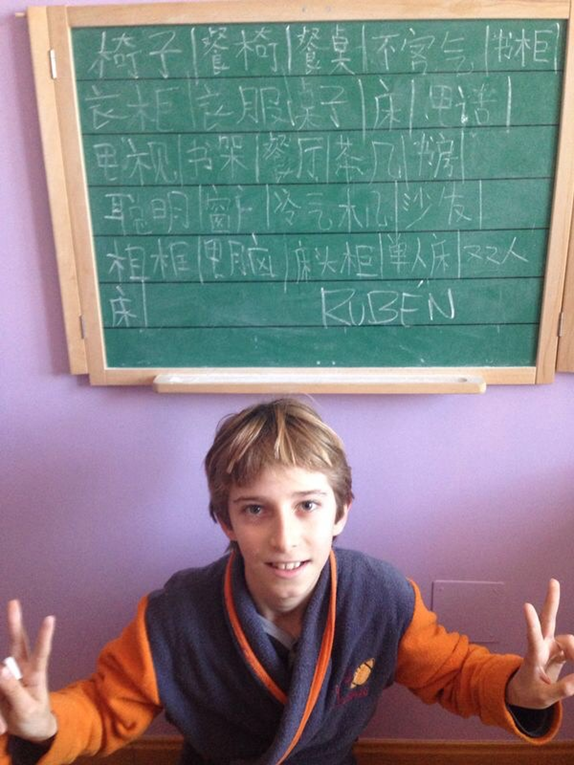 椅子|餐椅|餐桌|不客气|书柜|
衣柜|衣服|桌子|床|电话|
电视|书架|餐厅|茶几|书房|
聪明|窗户|冷气机|沙发|
相框|电脑|床头柜|单人床|双人
床| RUBÉN